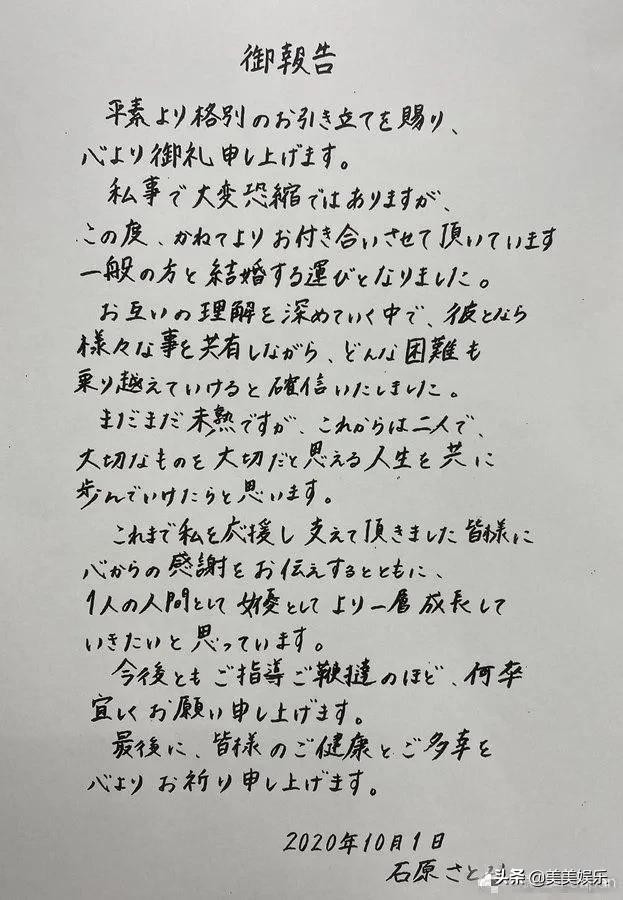 御報告
平素より格別のお引き立てを賜り、
心より御礼申し上げます。
私事で大変恐縮ではありますが、
この度、かねてよりお付き合いさせて頂いています
一般の方と結婚する運びとなりました。
お互いの理解を深めていく中で、彼となら
様々な事を共有しながら、どんな困難も
乗り越えていけると確信いたしました。
まだまだ未熟ですが、これからは二人で、
大切なものを大切だと思える人生を共に
歩んでいけたらと思います。
これまで私を応援し支えて頂きました皆様に
心からの感謝をお伝えするとともに、
1人の人間として女優としてより一層成長して
いきたいと思っています。
今後ともご指導ご鞭撻のほど、何卒
宜しくお願い申し上げます。
最後に、皆様のご健康とご多幸を
心よりお祈り申し上げます。
2020年10月1日
石原さと
头条 @美美娱乐